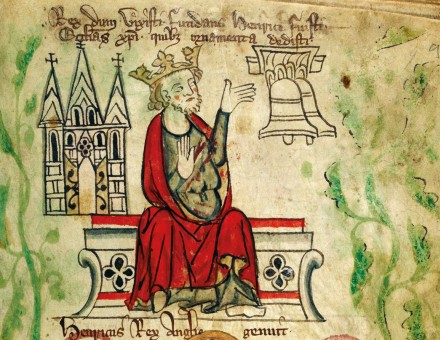 Rex dum vixisti fundans Henrice fuisti
Eccl'ias xpi· quibz ornamenta dedisti·
Henricus Rex Anglie genuit·